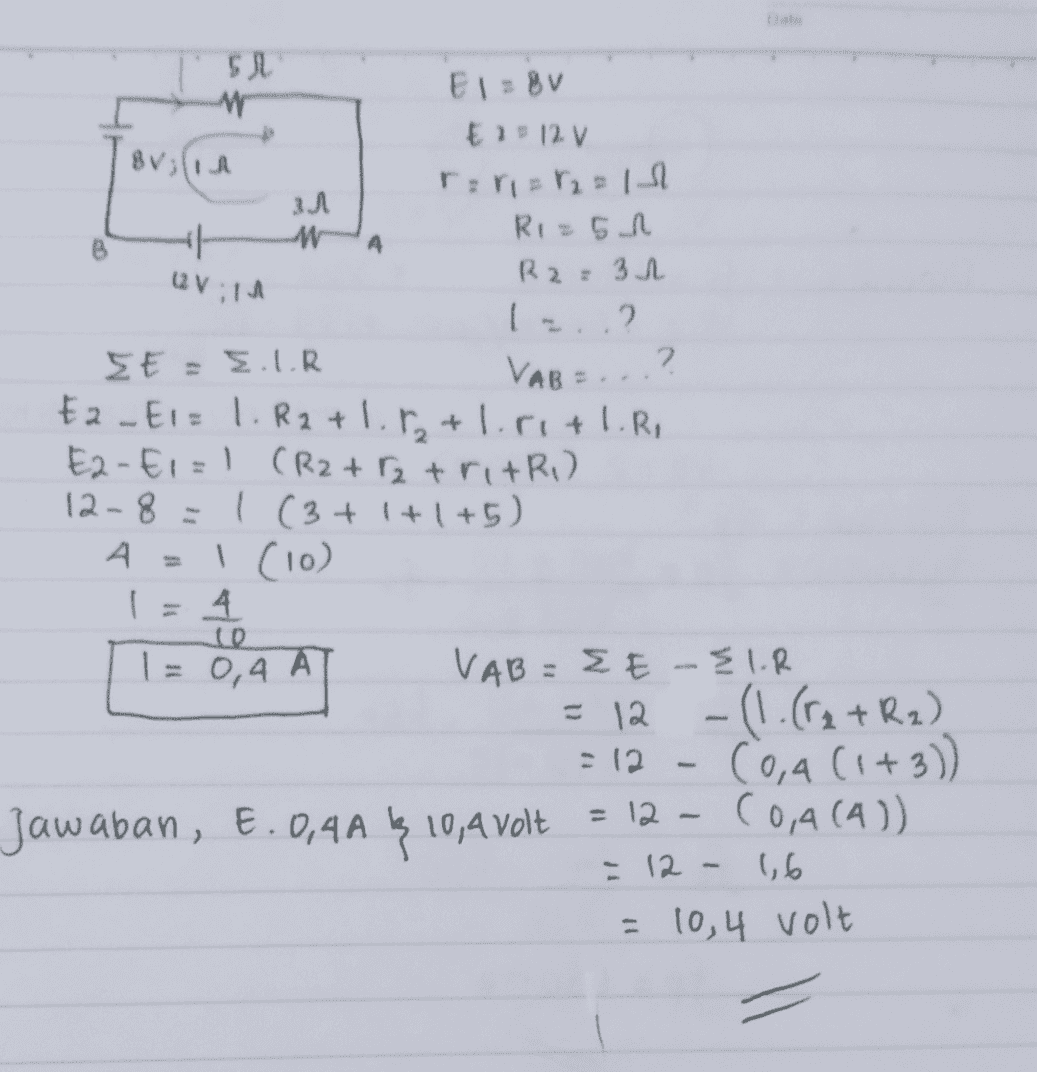 Date
5Ω
8V; 1Ω
3Ω
B
A
12V; 1Ω
E1 = 8V
E2 = 12 V
r = r₁ = r₂ = 1Ω
R1 = 5Ω
R2 = 3Ω
I = ..?
VAB = ...?
ΣE = Σ.I.R
E2 - E1 = I.R2 + I.r₂ + I.r1 + I.R₁
E2 - E1 = I (R2 + r₂ + r1 + R1)
12 - 8 = I (3 + 1 + 1 + 5)
4 = I (10)
I = 4/10
I = 0,4 A
VAB = ΣE - ΣI.R
= 12 - (I.(r₂ + R2)
= 12 - (0,4 (1+3))
= 12 - (0,4(4))
= 12 - 1,6
= 10,4 volt
Jawaban, E. 0,4A & 10,4 volt